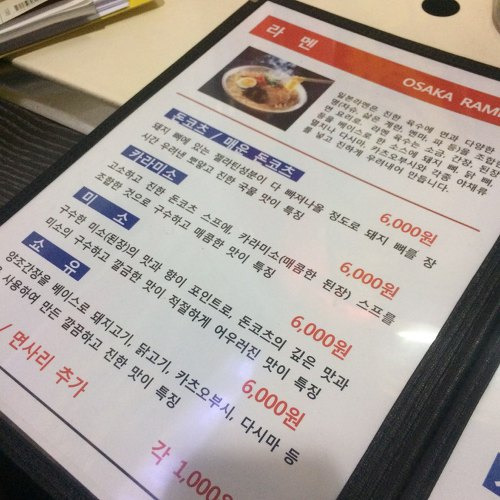 라 멘
OSAKA RAM
일본라멘은 진한 육수에 면과 다양한
명(차슈, 삶은 계란, 멘마, 파 등)을 조합
면 요리로, 라멘 육수는 소금, 간장, 된장
등을 베이스로 한 소스에 돼지 뼈, 닭 뼈,
멸치나 다시마, 카츠오부시와 각종 야채류
를 넣고 진하게 우려내어 만듭니다.
돈코츠 / 매유 돈코츠
6,000원
돼지 뼈에 있는 젤라틴성분이 다 빠져나올 정도로 돼지 뼈를 장
시간 우려낸 뽀얗고 진한 국물 맛이 특징
카라미소
6,000원
고소하고 진한 돈코츠 스프에, 카라미소(매콤한 된장) 스프를
조합한 것으로 구수하고 매콤한 맛이 특징
미 소
6,000원
구수한 미소(된장)의 맛과 향이 포인트로, 돈코츠의 깊은 맛과
미소의 구수하고 깔끔한 맛이 적절하게 어우러진 맛이 특징
쇼 유
6,000원
양조간장을 베이스로 돼지고기, 닭고기, 카츠오부시, 다시마 등
사용하여 만든 깔끔하고 진한 맛이 특징
/ 면사리 추가
각 1,000원